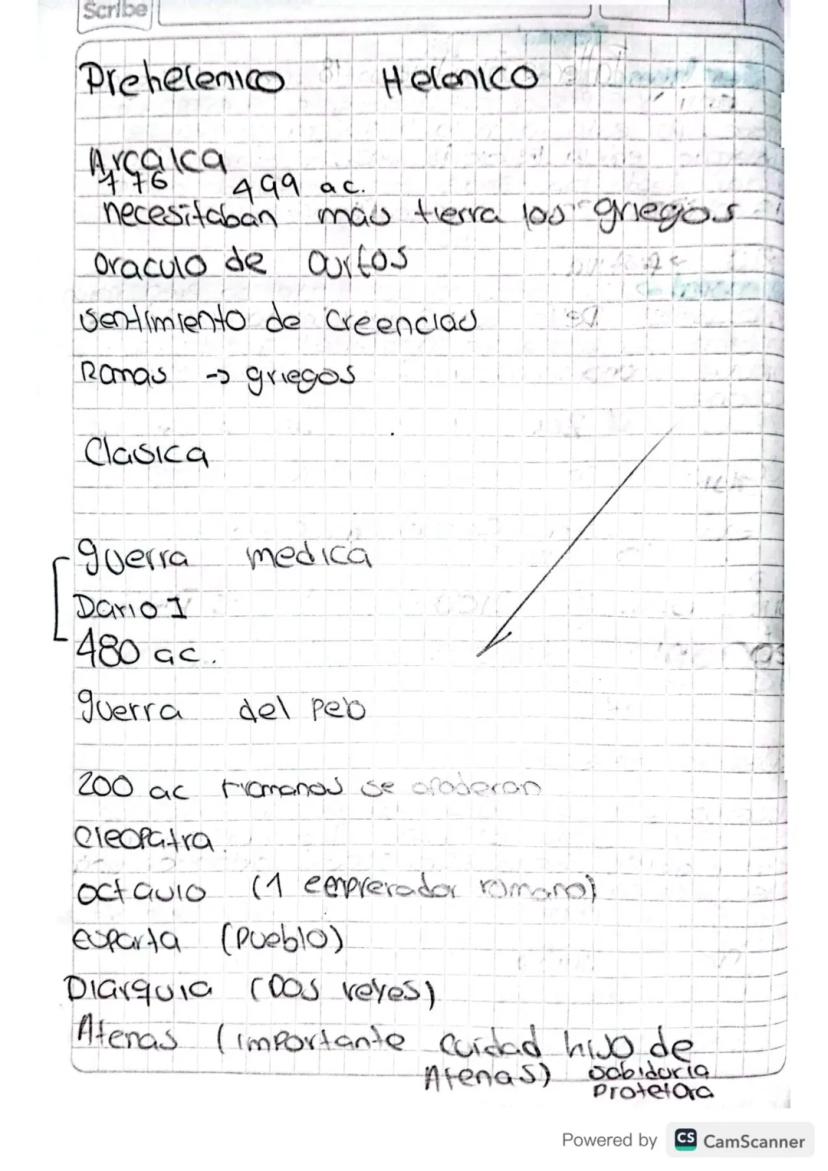 Scribe
Prehelenico Helenico
Arcaica
776 499 ac.
necesitaban mas tierra los griegos
oraculo de
sentimiento de creencias
Ramas -> griegos
Clasica
guerra medica
Dario I
480 ac.
guerra del pelo
200 ac romanos se apoderan
Cleopatra
octavio (1 emprerador romano)
esparta (pueblo)
Diarquia (Dos reyes)
Atenas (importante cuidad hijo de
Atenas) sabiduria
protetora
Powered by CS CamScanner